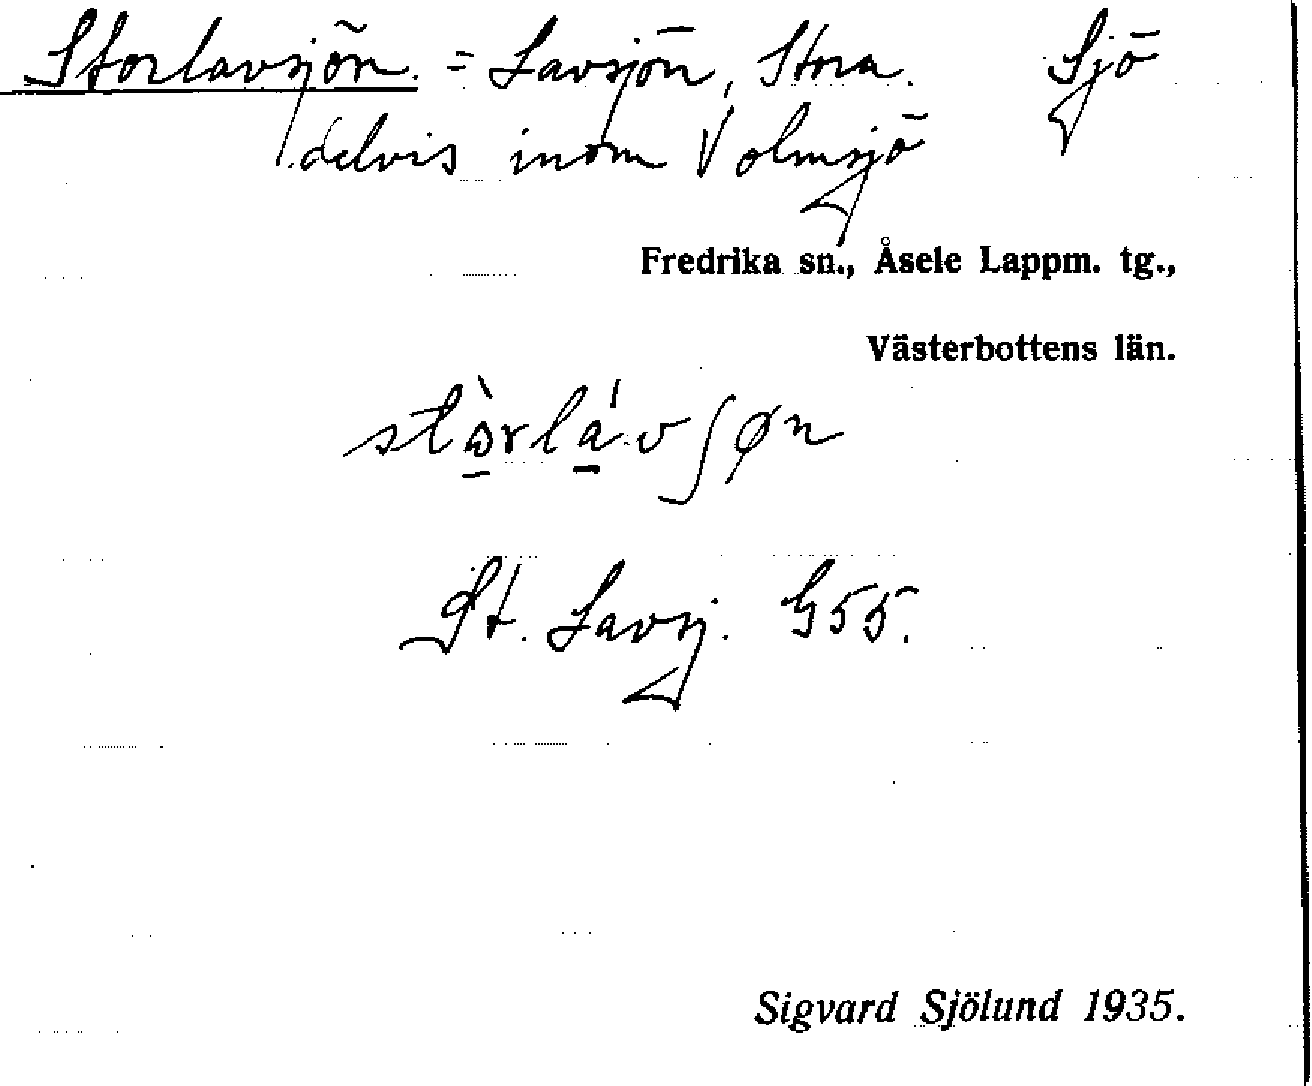 Storlavsjön. = Lavsjön, Stora. Sjö
delvis inom Volmsjö
Fredrika sn., Åsele Lappm. tg.,
Västerbottens län.
stò̠rlá̠vʃøn
St. Lavsj. G55.
Sigvard Sjölund 1935.